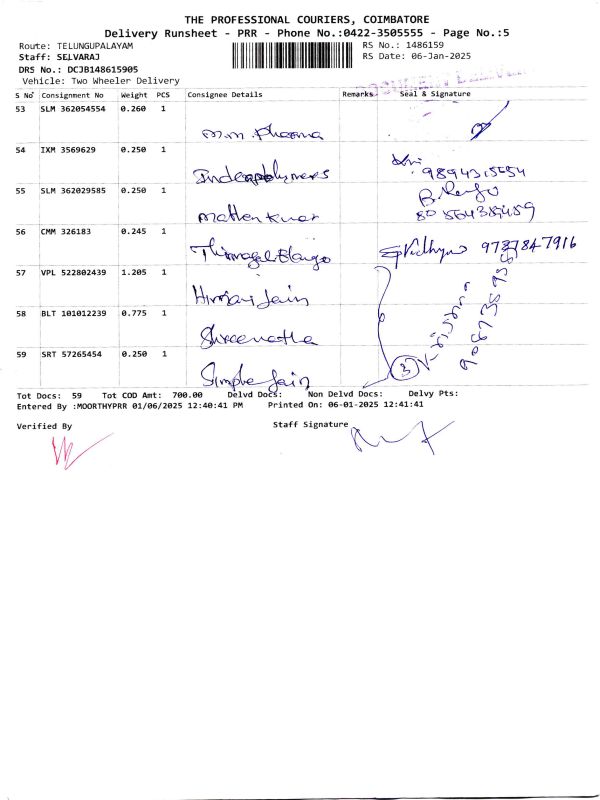 THE PROFESSIONAL COURIERS, COIMBATORE
Delivery Runsheet - PRR - Phone No.:0422-3505555 - Page No.:5
Route: TELUNGUPALAYAM RS No.: 1486159
Staff: SELVARAJ RS Date: 06-Jan-2025
DRS No.: DCJB148615905
Vehicle: Two Wheeler Delivery
S No Consignment No Weight PCS Consignee Details Remarks Seal & Signature
53 SLM 362054554 0.260 1
M.M. Pharma
54 IXM 3569629 0.250 1
Indeapolymers
55 SLM 362029585 0.250 1
56 CMM 326183 0.245 1
9787847916
57 VPL 522802439 1.205 1
Hirjai Jain
58 BLT 101012239 0.775 1
Shreenatha
59 SRT 57265454 0.250 1
3
Simpha Jain
Tot Docs: 59 Tot COD Amt: 700.00 Delvd Docs: Non Delvd Docs: Delvy Pts:
Entered By :MOORTHYPRR 01/06/2025 12:40:41 PM Printed On: 06-01-2025 12:41:41
Verified By Staff Signature